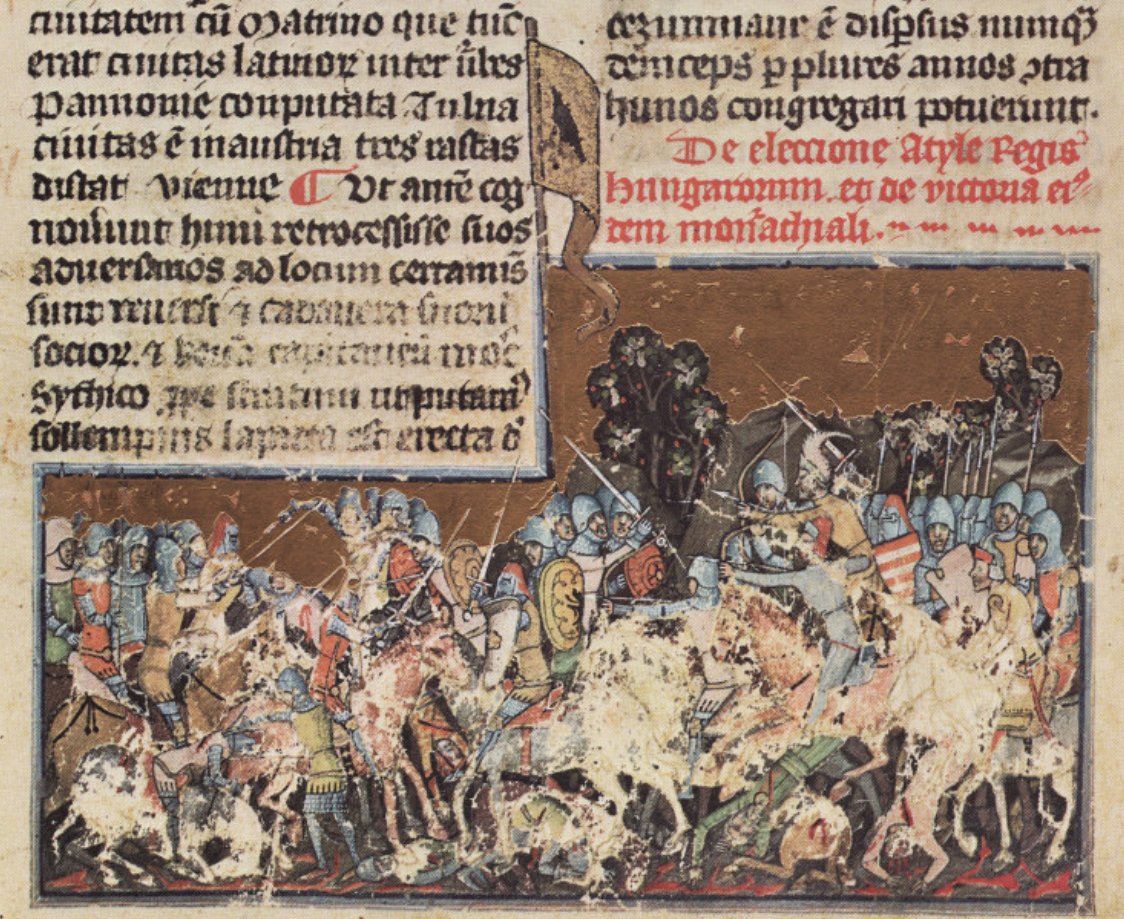 ciuitatem cū Matrino que tūc
erat ciuitas latinoꝝ inter ūbes
Pannonie conputata Tulna
ciuitas ē inaustria tres rastas
distat vienne ¶ Vt autē cog
nouiunt huni retrocessisse suos
aduersarios ad locum certamīs
sunt reuersi ⁊ cadauera
socioꝝ. ⁊
Sythico
sollempnis lapidea est erecta
est dispsus numqꝫ
deinceps ꝑ plures annos ↄtra
hunos congregari potuerunt.
De eleccione Atyle Regis
hungarorum. et de victoria ei
dem